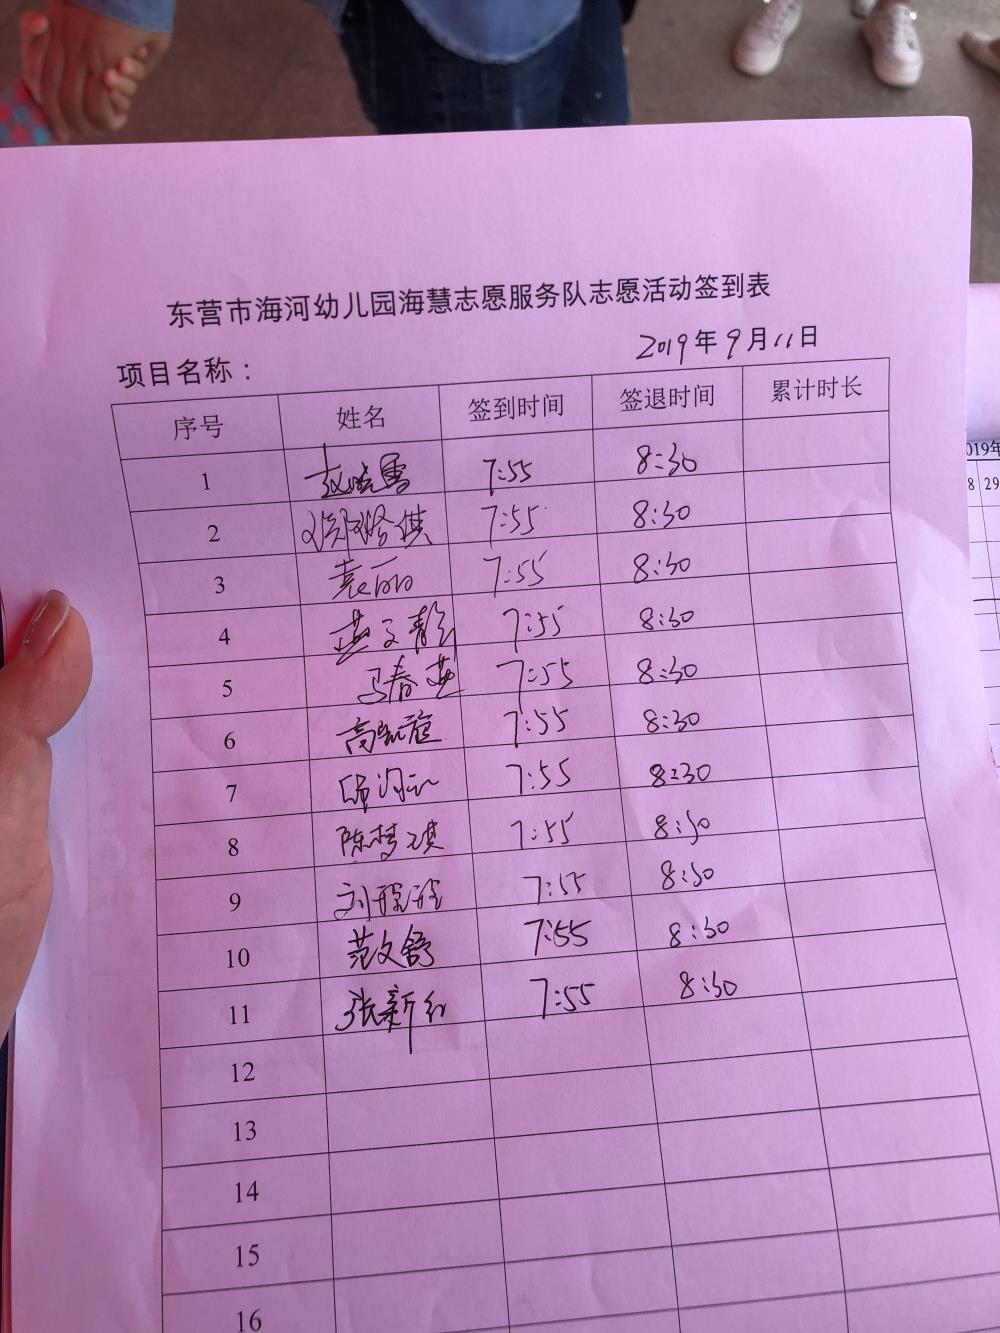 东营市海河幼儿园海慧志愿服务队志愿活动签到表
2019年9月11日
项目名称：
序号 姓名 签到时间 签退时间 累计时长
1 赵晓雪 7:55 8:30
2 7:55 8:30
3 袁丽 7:55 8:30
4 燕文静 7:55 8:30
5 马春燕 7:55 8:30
6 高凯旋 7:55 8:30
7 7:55 8:30
8 陈梦琪 7:55 8:30
9 刘琛琛 7:55 8:30
10 范文舒 7:55 8:30
11 张新红 7:55 8:30
12
13
14
15
16
019年
8 29